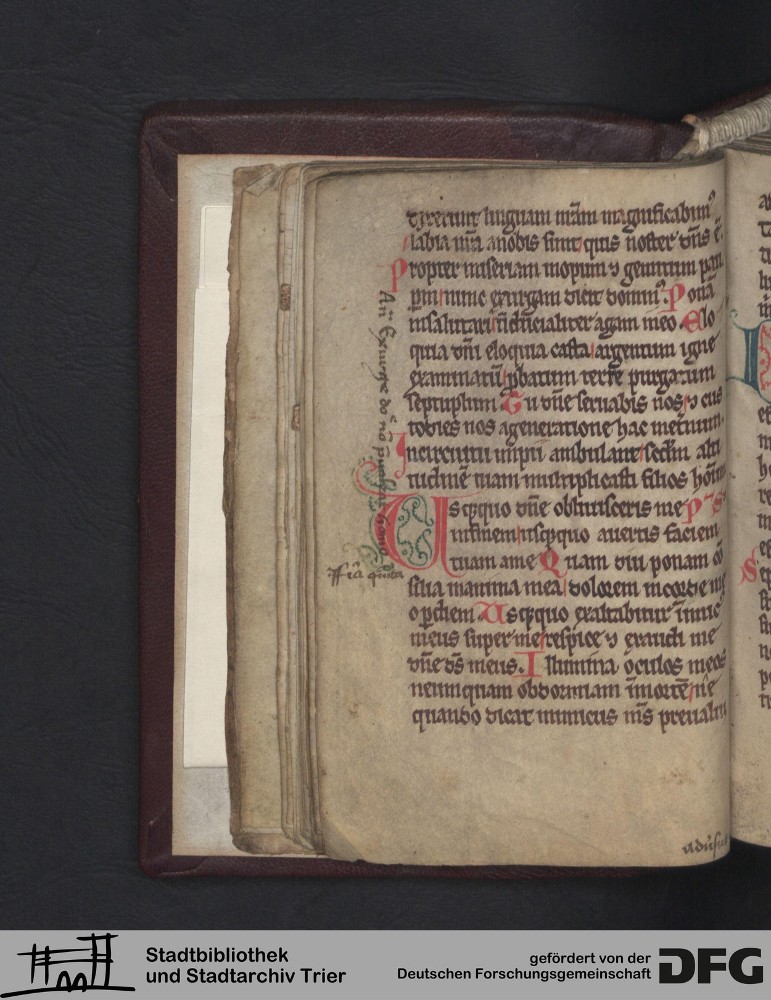 dixerunt linguam nr̄am magnificabimꝰ
labia nr̄a a nobis sunt quis noster dn̄s ē.
Propter miseriam inopum ⁊ gemitum pau
pm̄ nunc exurgam dicit dominꝰ. Ponā
in salutari fiducialiter agam in eo Elo
quia dn̄i eloquia casta argentum igne
examinatū ꝓbatum terre purgatum
septuplum Tu dn̄e seruabis nos ⁊ cus
todies nos a generatione hac in eternum.
In circuitu impii ambulant secdm̄ alti
tudinē tuam multiplicasti filios hoīm
Usq̄quo dn̄e obliuisceris me pˢ
in finem usq̄quo auertis faciem
tuam a me Quam diu ponam cō
silia in anima mea dolorem in corde m̄
o ꝑ diem Usq̄quo exaltabitur īimic
meus super me respice ⁊ exaudi me
dn̄e ds̄ meus. Illumina oculos meos
ne umquam obdormiam ī morte ne
quando dicat inimicus ms̄ preualui
An̄ Exurge do n̄o
ffīa qūnta
Stadtbibliothek
und Stadtarchiv Trier
gefördert von der
Deutschen Forschungsgemeinschaft
DFG